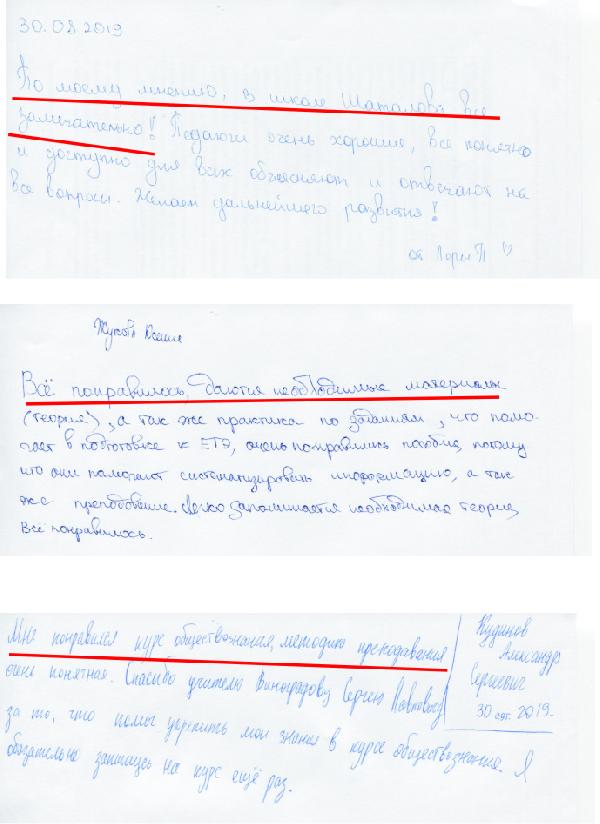 30.08.2019
По моему мнению, в школе Шаталова все
замечательно! Педагоги очень хорошие, все понятно
и доступно для всех объясняют и отвечают на
все вопросы. Желаем дальнейшего развития!
от
Всё понравилось, даются необходимые материалы
(теория), а так же практика по заданиям, что помо-
гает в подготовке к ЕГЭ, очень понравились пособия, потому
что они помогают систематизировать информацию, а так
же преподавание. Легко запоминается необходимая теория,
Всё понравилось.
Мне понравился курс обществознания, методика преподавания
очень понятная. Спасибо учителю Виноградову Сергею Львовичу
за то, что помог укрепить мои знания в курсе обществознания. Я
обязательно запишусь на курс ещё раз.
Кудинов
Александр
Сергеевич
30 авг. 2019.